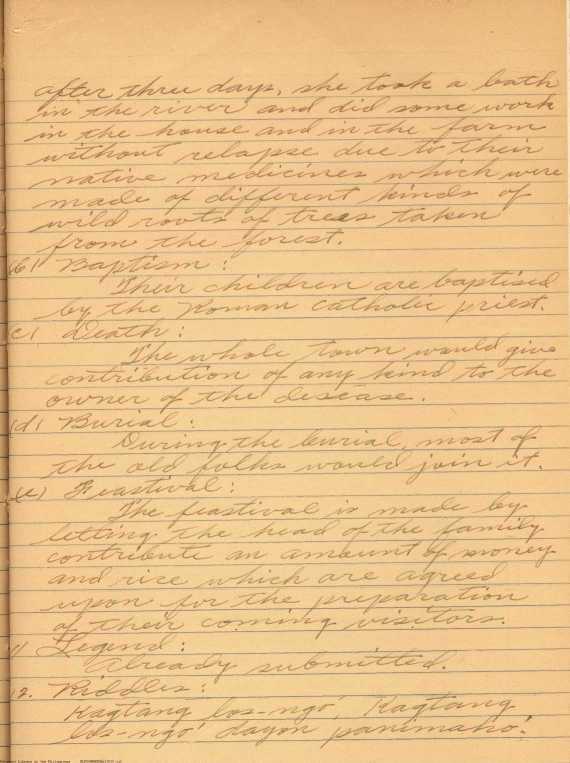 after three days, she took a bath
in the river and did some work
in the house and in the farm
without relapse due to their
native medicines which were
made of different kinds of
wild roots of trees taken
from the forest.
(b) Baptism :
Their children are baptised
by the Roman Catholic priest.
(c) Death :
The whole town would give
contribution of any kind to the
owner of the disease.
(d) Burial :
During the burial, most of
the old folks would join it.
(e) Feastival :
The feastival is made by
letting the head of the family
contribute an amount of money
and rice which are agreed
upon for the preparation
of their coming visitors.
Legend :
Already submitted.
12. Riddles :
Kagtang los-ngo', Kagtang
los-ngo' dayon panimaho'.